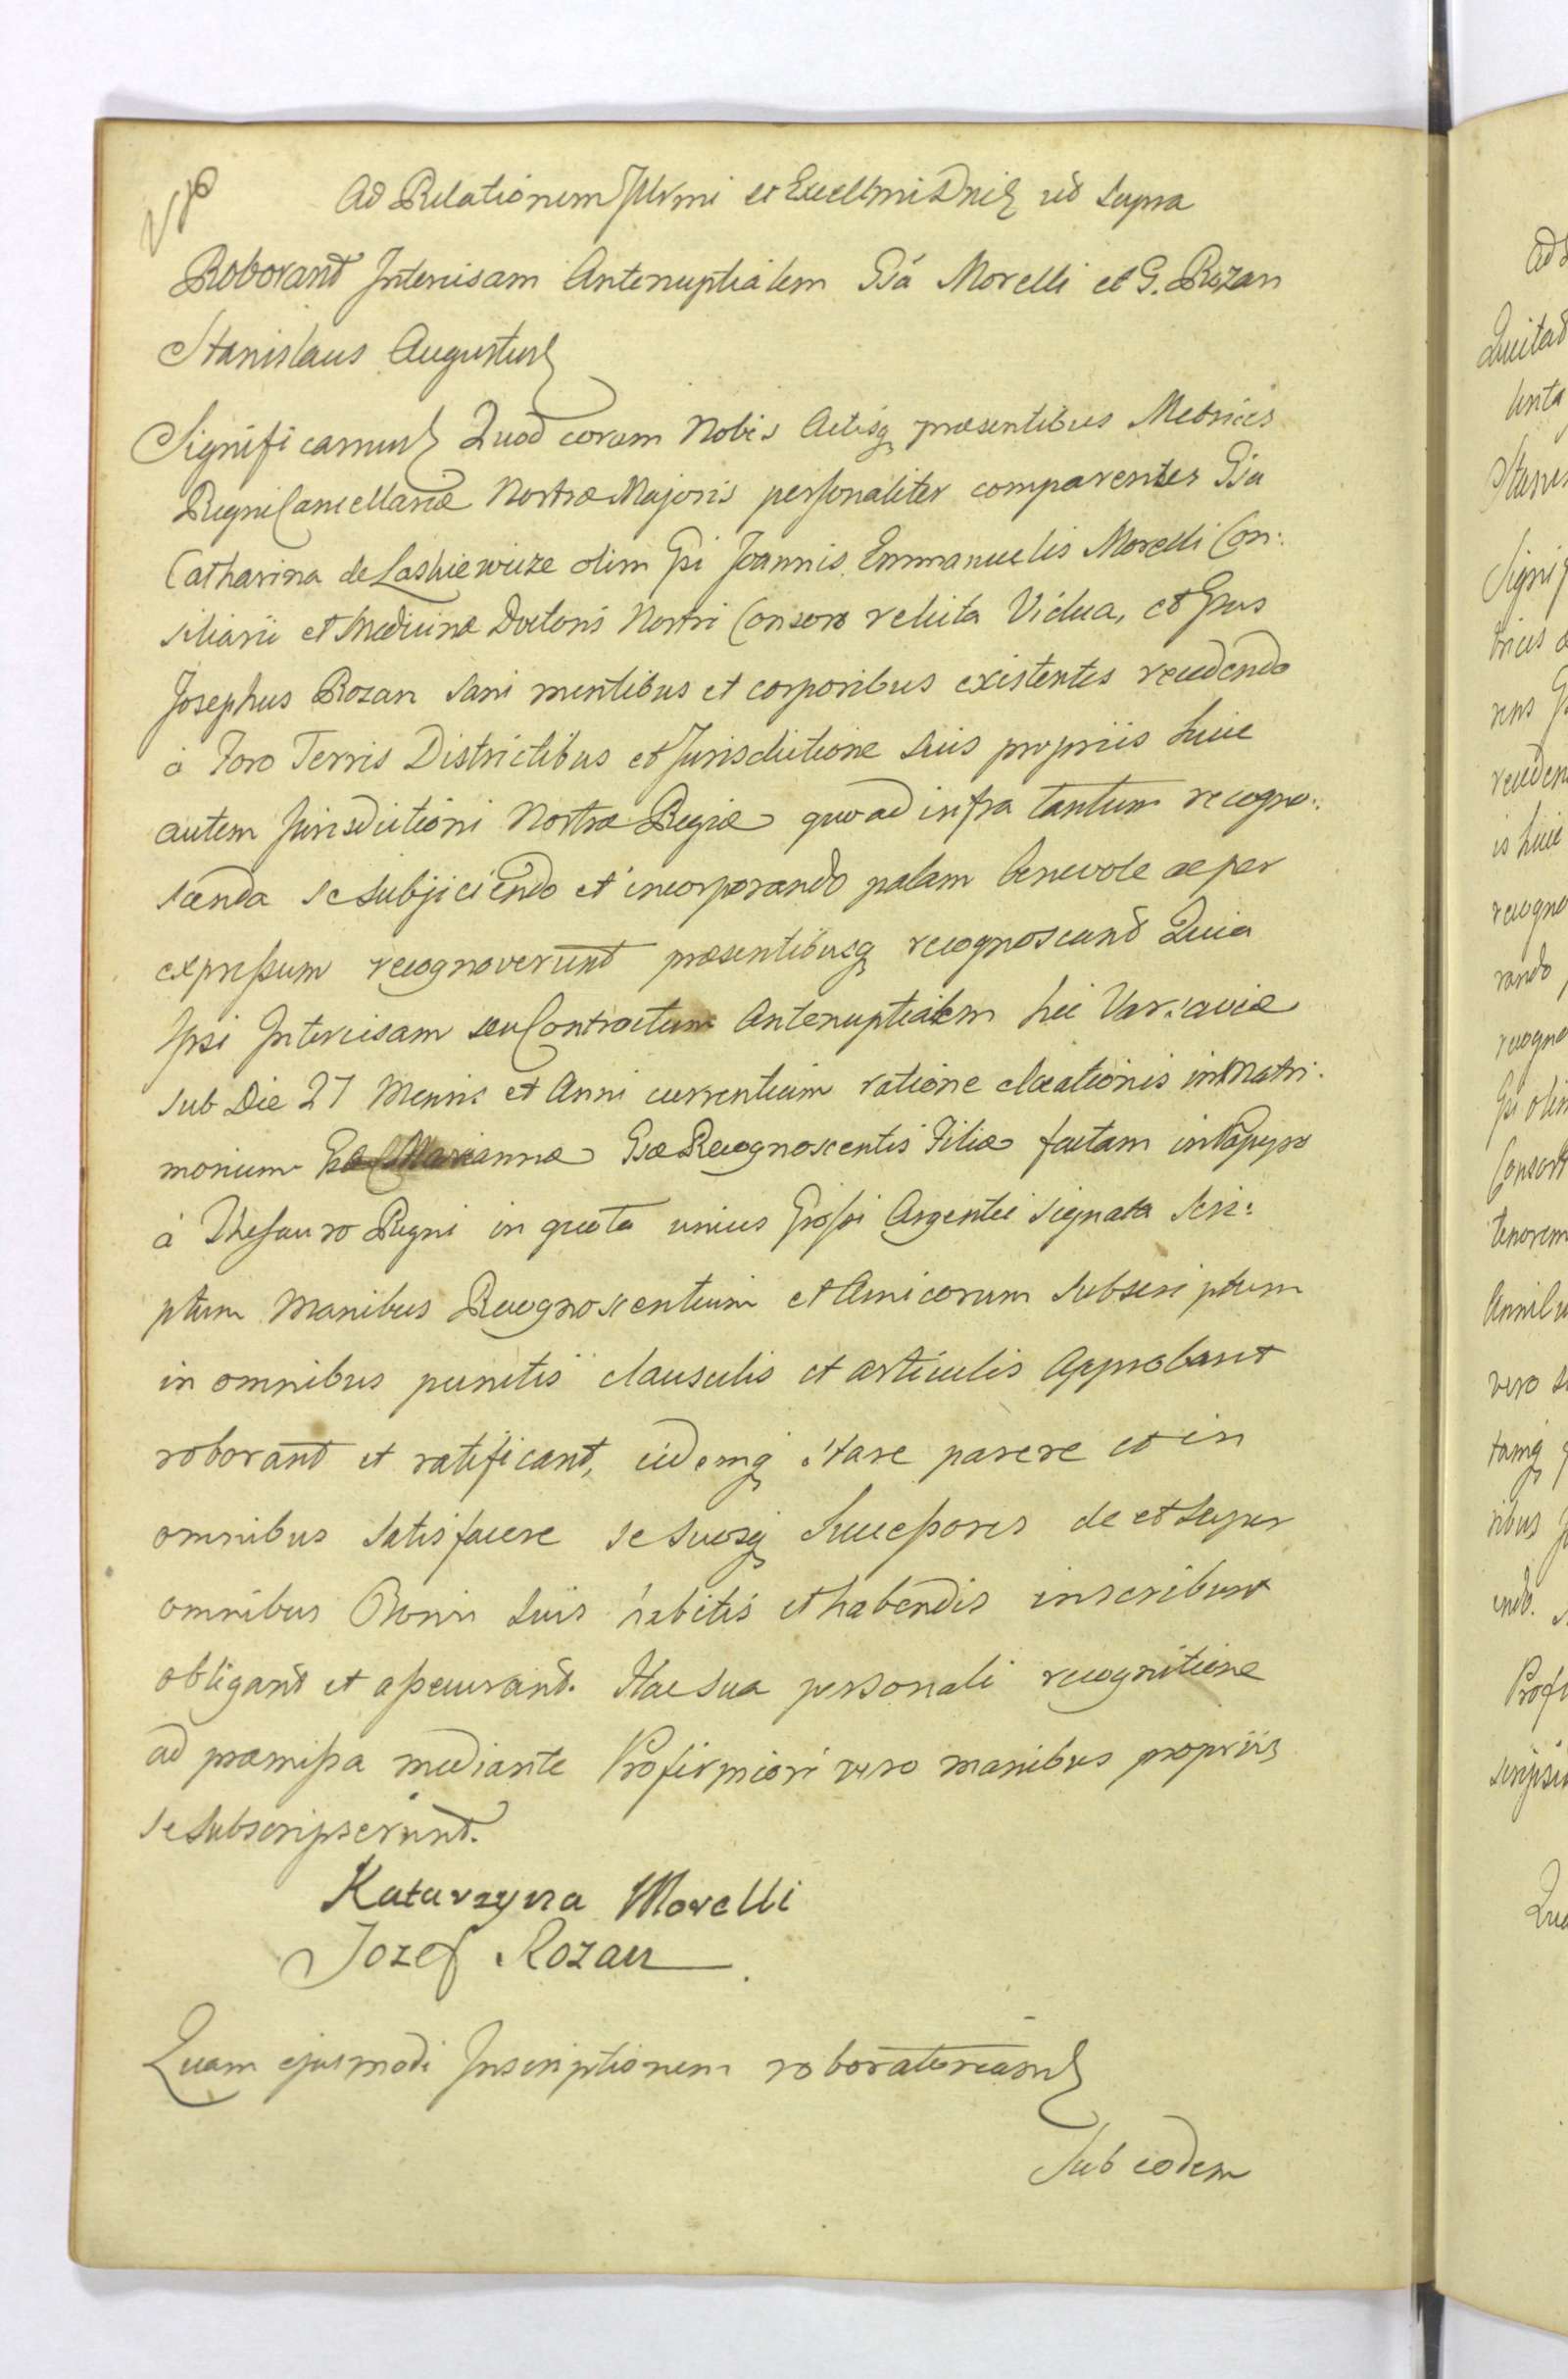 Ad Relationem Jllrmi et Excellmi Dni ut supra
Roborant Intercisam Antenuptialem Gsa Morelli et G. Rozan
Stanislaus Augustus
Significamus Quod coram Nobis Actisq praesentibus Metrices
Regni Cancellariae Nostrae Majoris personaliter comparentes Gsa
Catharina de Laskiewicze olim Gsi Joannis Emmanuelis Morelli Con:
siliarii et Medicinae Doctoris Nostri Consors relicta Vidua, et Gsus
Josephus Rozan sani mentibus et corporibus existentes recedendo
à Foro Terris Districtibus et Jurisdictione suis propriis huic
autem Jurisdictioni Nostrae Regiae quo ad infra tantum recogno:
scenda se subjiciendo et incorporando palam benevole ac per
expressum recognoverunt praesentibusq recognoscunt Quia
Ipsi Intercisam seu Contractum Antenuptialem hic Varsaviae
sub Die 27 Mensis et Anni currentium ratione elocationis in Matri:
monium Gsae Mariannae Gsae Recognoscentis Filiae factam in Papyro
à Thesauro Regni in quota unius Grossi Argentei signata scri:
ptum Manibus Recognoscentium et Amicorum subscriptum
in omnibus punctis clausulis et articulis approbant
roborant et ratificant, eidemq stare parere et in
omnibus satisfacere se suosq Successores de et super
omnibus Bonis suis habitis et habendis inscribunt
obligant et assecurant. Hac sua personali recognitione
ad praemissa mediante Pro firmiori vero manibus propriis
se subscripserunt.
Katarzyna Morelli
Jozef Rozan
Quam ejusmodi Inscriptionem roboratoriam
Sub eodem